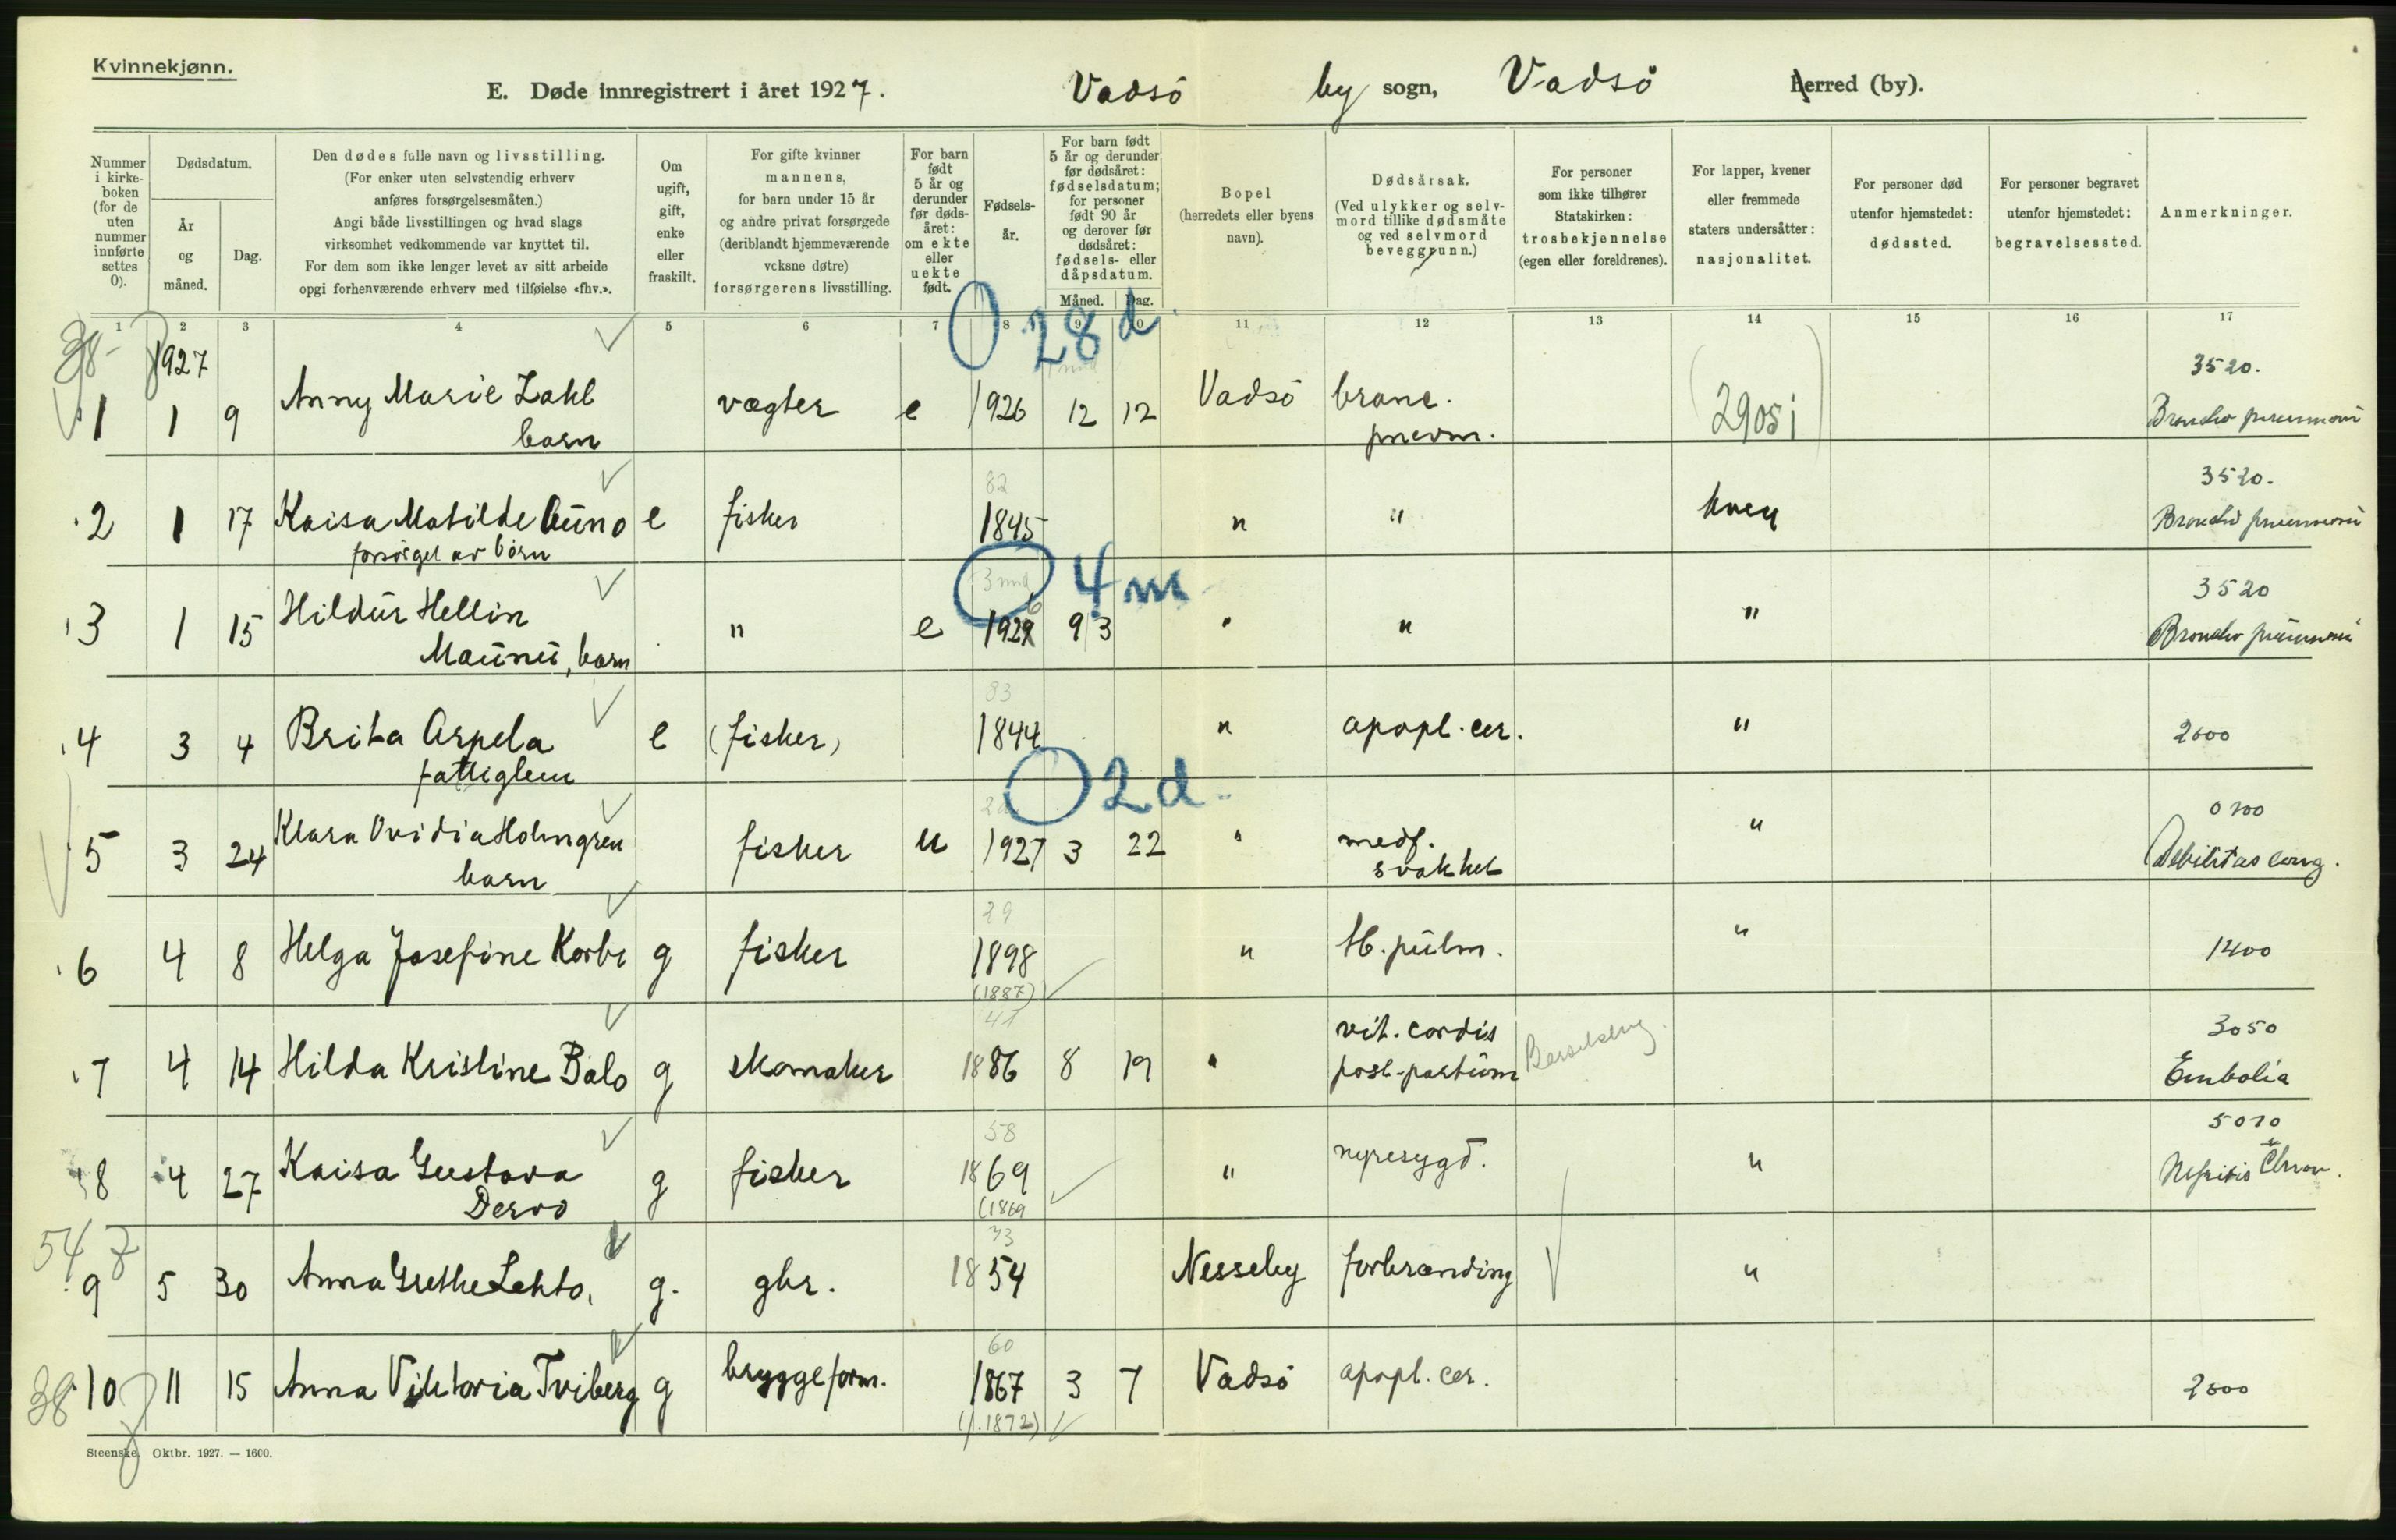 Kvinnekjønn.
E. Døde innregistrert i året 1927. Vadsö by sogn, Vadsö herred (by).
Nummer i kirkeboken (for de uten nummer innførte settes 0).
Dødsdatum.
År og måned.
Dag.
Den dødes fulle navn og livsstilling.
(For enker uten selvstendig erhverv
anføres forsørgelsesmåten.)
Angi både livsstillingen og hvad slags
virksomhet vedkommende var knyttet til.
For dem som ikke lenger levet av sitt arbeide
opgi forhenværende erhverv med tilføielse «fhv.».
Om ugift, gift, enke eller fraskilt.
For gifte kvinner
mannens,
for barn under 15 år
og andre privat forsørgede
(deriblandt hjemmeværende
voksne døtre)
forsørgerens livsstilling.
For barn født 5 år og derunder før dødsåret: om ekte eller uekte født.
Fødselsår.
For barn født
5 år og derunder
før dødsåret:
fødselsdatum;
for personer
født 90 år
og derover før
dødsåret:
fødsels- eller
dåpsdatum.
Måned. Dag.
Bopel
(herredets eller byens
navn).
Dødsårsak.
(Ved ulykker og selvmord tillike dødsmåte
og ved selvmord
beveggrunn.)
For personer
som ikke tilhører
Statskirken:
trosbekjennelse
(egen eller foreldrenes).
For lapper, kvener
eller fremmede
staters undersåtter:
nasjonalitet.
For personer død
utenfor hjemstedet:
dødssted.
For personer begravet
utenfor hjemstedet:
begravelsessted.
Anmerkninger.
1 2 3 4 5 6 7 8 9 10 11 12 13 14 15 16 17
38 1927 28 d. 3520.
1 1 9 Anny Marie Zahl vægter e 1926 12 12 Vadsö bronc. 2905 Broncho pneumoni
barn pnevm.
82 3520.
2 1 17 Kaisa Matilde Auno e fisker 1845 " " kven Broncho pneumoni
forsörget av börn
3 mnd 4 m 3520
3 1 15 Hildur Hellin " e 1926 9 3 " " " Broncho pneumoni
Maunu, barn
83
4 3 4 Brita Arpela e (fisker) 1844 " apopl. cer. " 2000
fattiglem
2 d 2 d. 0700
5 3 24 Klara Ovidia Holmgren fisker u 1927 3 22 " medf. " Debilitas cong.
barn svakhet
29
6 4 8 Helga Josefine Korbi g fisker 1898 " tb. pulm. " 1400
(1887)
41 vit. cordis 3050
7 4 14 Hilda Kristine Balo g skomaker 1886 8 19 " post-partum Embolia
58 5010
8 4 27 Kaisa Gustava g fisker 1869 " nyresygd. " Nefritis Chron.
Dervo (1869
54 73
9 5 30 Anna Grethe Lehto. g. gbr. 1854 Nesseby forbrænding "
60
38 10 11 15 Anna Viktoria Tviberg g bryggeform. 1867 3 7 Vadsö apopl. cer. 2000
(f. 1872)
Steenske. Oktbr. 1927. — 1600.